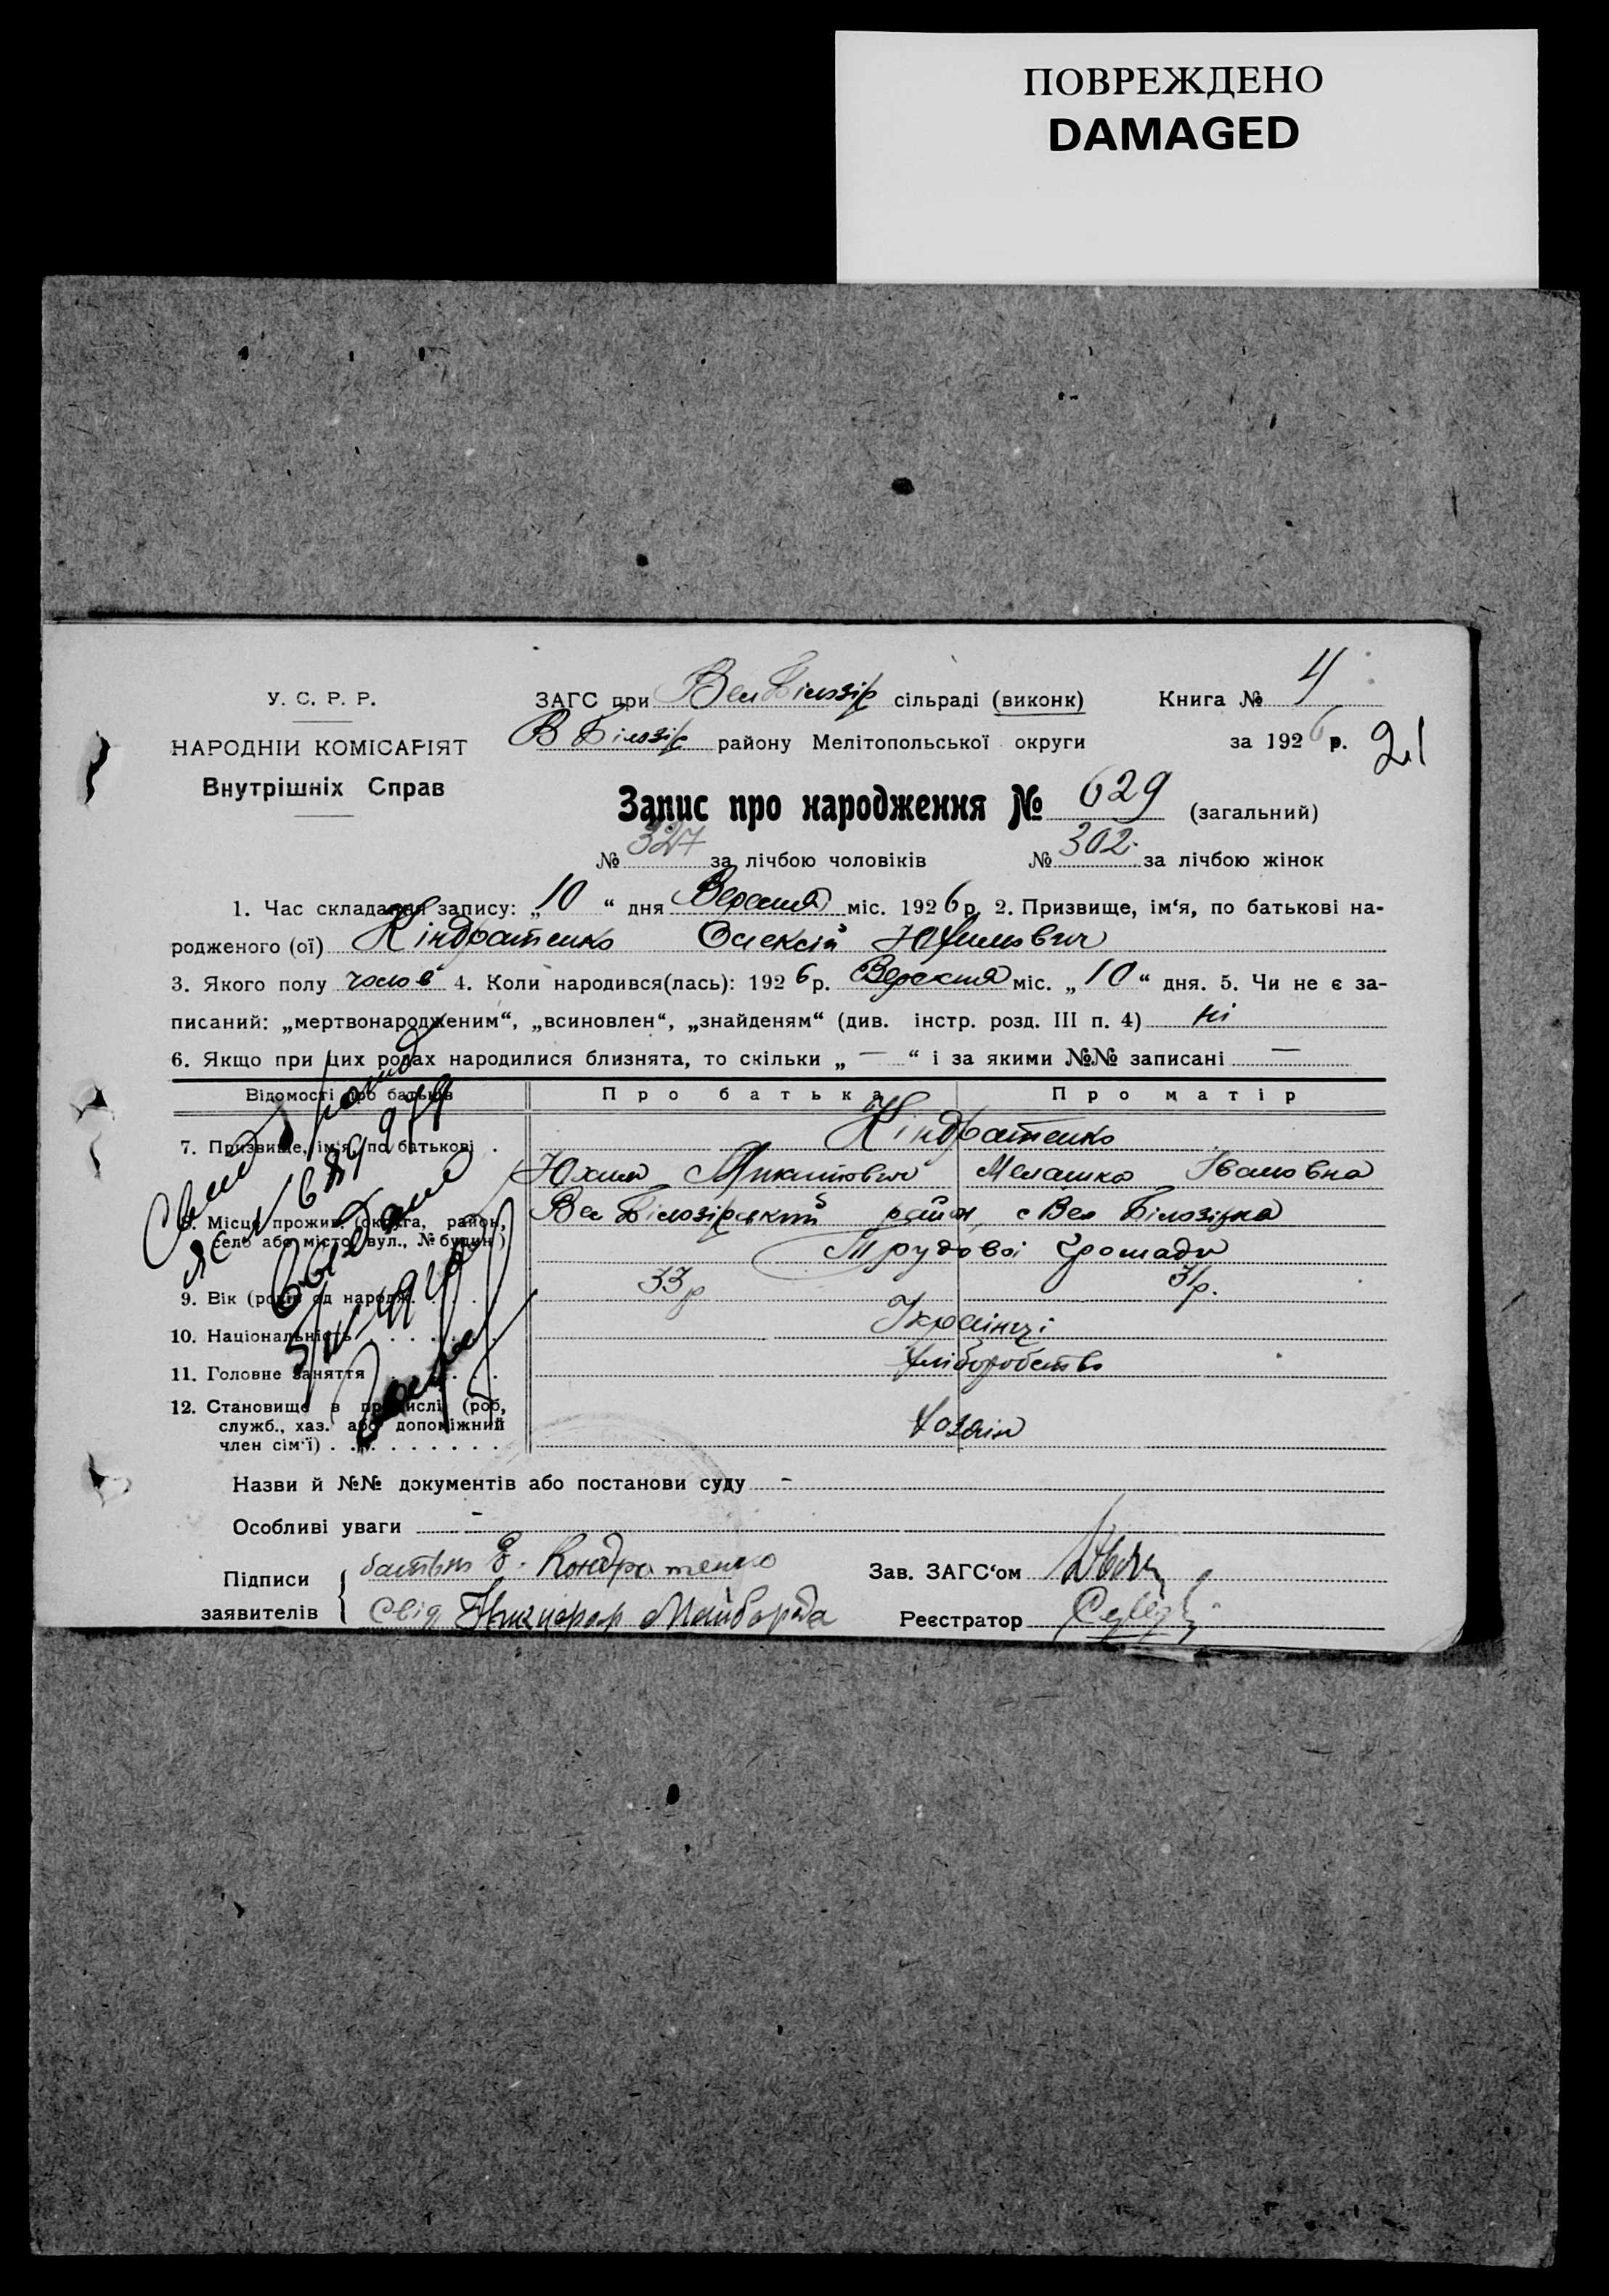 ПОВРЕЖДЕНО
DAMAGED
У. С. Р. Р.
НАРОДНІЙ КОМІСАРІЯТ
Внутрішніх Справ
ЗАГС при Вел Білозір сільраді (виконк)
В Білозір району Мелітопольської округи
Книга № 4
за 1926 р. 21
Запис про народження № 629 (загальний)
№ 327 за лічбою чоловіків № 302. за лічбою жінок
1. Час складання запису: „10“ дня Вересня міс. 1926 р. 2. Призвище, ім‘я, по батькові на-
родженого (ої) Кіндратенко Олексій Юхимович
3. Якого полу чолов 4. Коли народився(лась): 1926 р. Вересня міс. „10“ дня. 5. Чи не є за-
писаний: „мертвонародженим“, „всиновлен“, „знайденям“ (див. інстр. розд. III п. 4) ні
6. Якщо при цих родах народилися близнята, то скільки „ — “ і за якими №№ записані —
Відомості про батьків Про батька Про матір
7. Призвище, ім‘я, по батькові . Кіндратенко
Юхим Микитович Мелашка Івановна
8. Місце прожив. (округа, район, Вел Білозірський район, с Вел Білозірка
село або місто, вул., № будин.) Трудової громади
9. Вік (років од народж. 33 р 31 р.
10. Національність Українці
11. Головне заняття Хліборобство
12. Становище в промислі (роб,
служб., хаз. або допоміжний Хазяін
член сім‘ї)
Назви й №№ документів або постанови суду -
Особливі уваги -
Підписи
заявителів
батько Е. Кондратенко
Свід Майборода
Зав. ЗАГС‘ом
Реєстратор